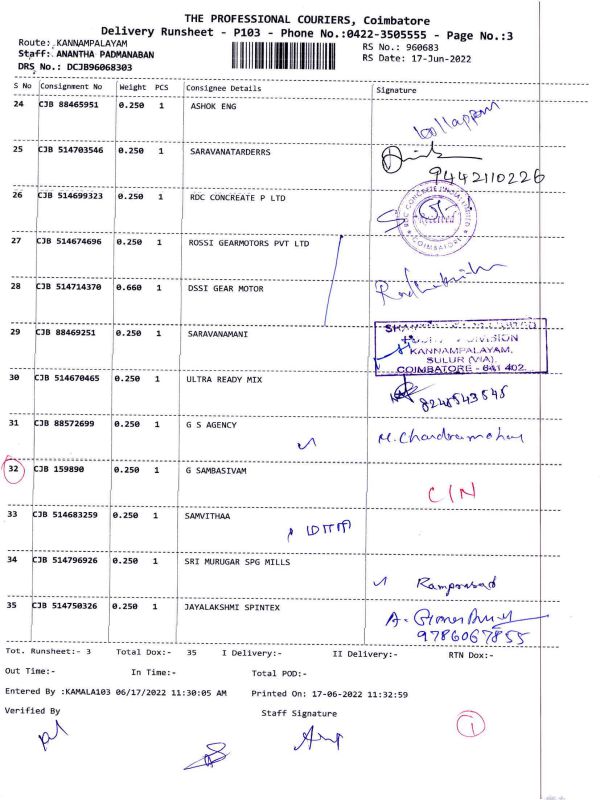 THE PROFESSIONAL COURIERS, Coimbatore
Delivery Runsheet - P103 - Phone No.:0422-3505555 - Page No.:3
Route: KANNAMPALAYAM
RS No.: 960683
Staff: ANANTHA PADMANABAN
RS Date: 17-Jun-2022
DRS No.: DCJB96068303
S No Consignment No Weight PCS Consignee Details Signature
24 CJB 88465951 0.250 1 ASHOK ENG
25 CJB 514703546 0.250 1 SARAVANATARDERRS
9442110226
26 CJB 514699323 0.250 1 RDC CONCREATE P LTD
RDC CONCRETE (INDIA) LIMITED
COIMBATORE
27 CJB 514674696 0.250 1 ROSSI GEARMOTORS PVT LTD
28 CJB 514714370 0.660 1 DSSI GEAR MOTOR
29 CJB 88469251 0.250 1 SARAVANAMANI
LIMITED
DIVISION
KANNAMPALAYAM,
SULUR (VIA).
COIMBATORE - 641 402.
30 CJB 514670465 0.250 1 ULTRA READY MIX
8248543545
31 CJB 88572699 0.250 1 G S AGENCY M. Chandramohan
32 CJB 159890 0.250 1 G SAMBASIVAM
C/N
33 CJB 514683259 0.250 1 SAMVITHAA
34 CJB 514796926 0.250 1 SRI MURUGAR SPG MILLS
Ramprasad
35 CJB 514750326 0.250 1 JAYALAKSHMI SPINTEX
9786067855
Tot. Runsheet:- 3 Total Dox:- 35 I Delivery:- II Delivery:- RTN Dox:-
Out Time:- In Time:- Total POD:-
Entered By :KAMALA103 06/17/2022 11:30:05 AM Printed On: 17-06-2022 11:32:59
Verified By Staff Signature
1